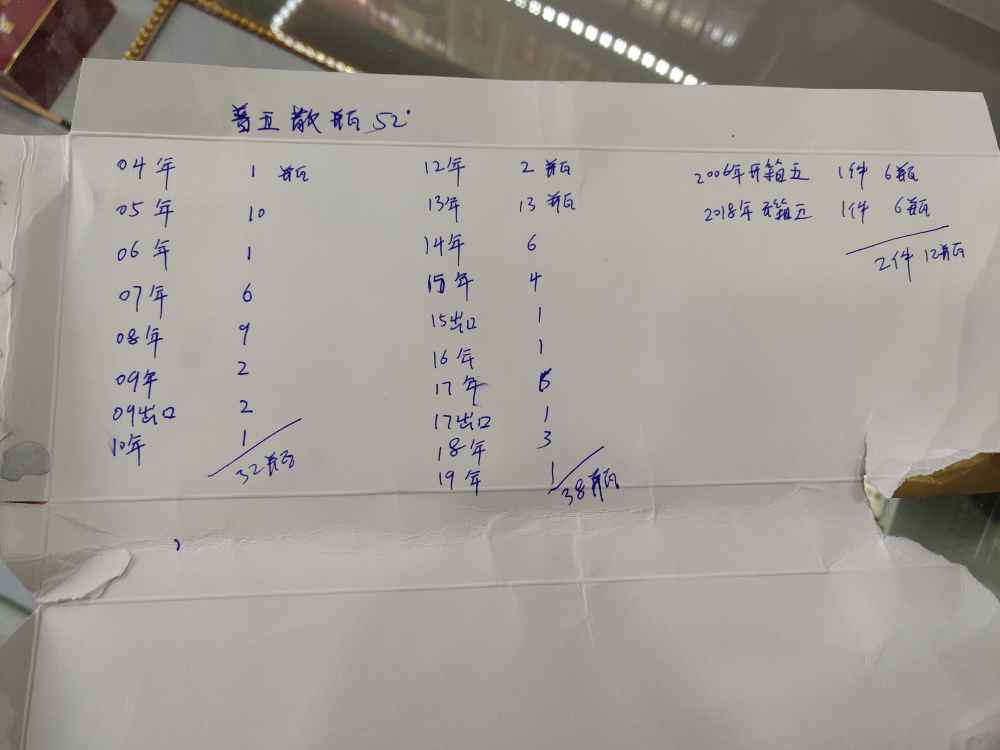 普五散瓶52°
04年 1瓶
05年 10
06年 1
07年 6
08年 9
09年 2
09出口 2
10年 1
32瓶
12年 2瓶
13年 13瓶
14年 6
15年 4
15出口 1
16年 1
17年 6
17出口 1
18年 3
19年 1
38瓶
2006年开箱五 1件 6瓶
2018年开箱五 1件 6瓶
2件 12瓶